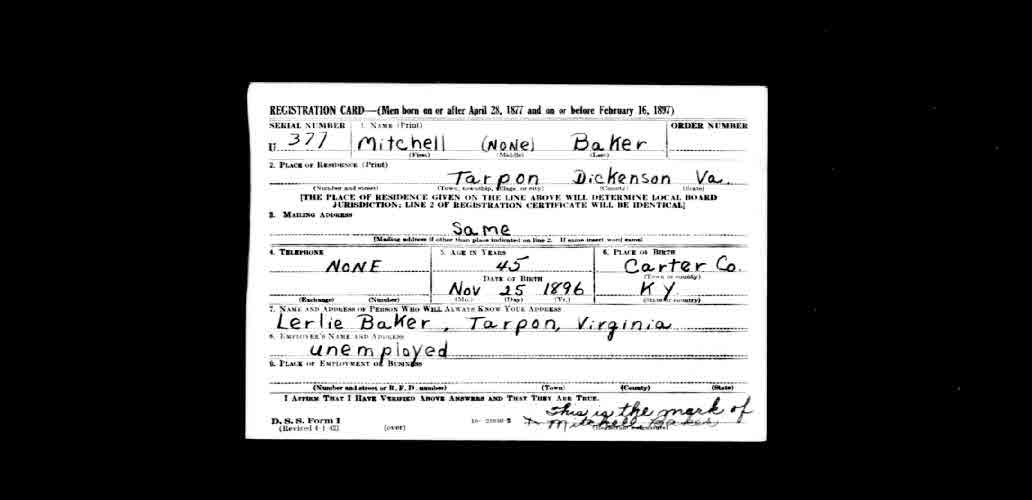 REGISTRATION CARD—(Men born on or after April 28, 1877 and on or before February 16, 1897)
SERIAL NUMBER 1. NAME (Print) ORDER NUMBER
U 377 Mitchell (NONE) Baker
(First) (Middle) (Last)
2. PLACE OF RESIDENCE (Print)
Tarpon Dickenson Va.
(Number and street) (Town, township, village, or city) (County) (State)
[THE PLACE OF RESIDENCE GIVEN ON THE LINE ABOVE WILL DETERMINE LOCAL BOARD
JURISDICTION; LINE 2 OF REGISTRATION CERTIFICATE WILL BE IDENTICAL]
3. MAILING ADDRESS
Same
[Mailing address if other than place indicated on line 2. If same insert word same]
4. TELEPHONE 5. AGE IN YEARS 6. PLACE OF BIRTH
NONE 45 Carter Co.
DATE OF BIRTH (Town or county)
Nov 25 1896 KY
(Exchange) (Number) (Mo.) (Day) (Yr.) (State or country)
7. NAME AND ADDRESS OF PERSON WHO WILL ALWAYS KNOW YOUR ADDRESS
Lerlie Baker, Tarpon, Virginia
8. EMPLOYER'S NAME AND ADDRESS
unemployed
9. PLACE OF EMPLOYMENT OR BUSINESS
(Number and street or R. F. D. number) (Town) (County) (State)
I AFFIRM THAT I HAVE VERIFIED ABOVE ANSWERS AND THAT THEY ARE TRUE.
this is the mark of
D. S. S. Form 1 Mitchell Baker
(Revised 4-1-42) (over)